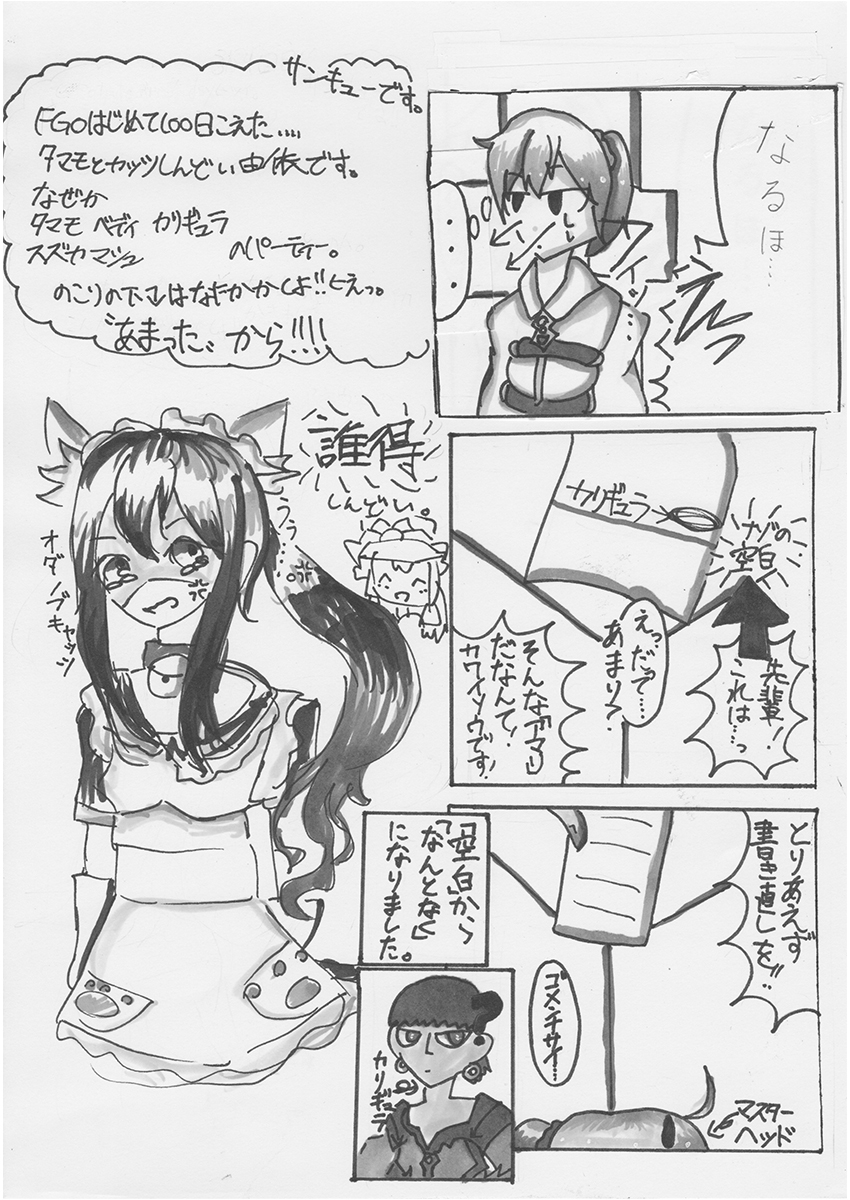 サンキューです。
FGOはじめて100日こえた....
タマモとカッツしんどい由依です。
なぜか
タマモ ベディ カリギュラ
スズカ マシュ のパーティー。
のこりの下マはなにかかくよ!!とえっ。
あまった、から!!!!
なるほ…
カリギュラ
ナゾの
空白
先輩!
これは…っ
えっだって…
あまり?
そんな「アマ」
だなんて!
カワイソウです!
誰得
しんどい。
うぅ…。
オダノブキャッツ
とりあえず
書き直しを!!
ゴメンナサイ…
マスター
ヘッド
「空白」から
「なんとな」
になりました。
カリギュラ